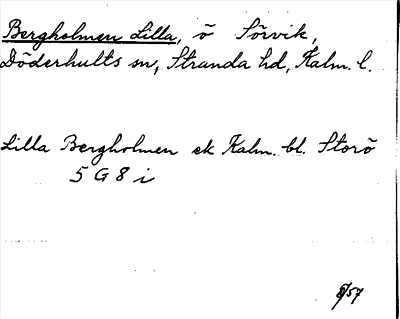 Bergholmen Lilla, ö Sörvik,
Döderhults sn, Stranda hd, Kalm. l.
Lilla Bergholmen ek Kalm. bl. Storö
5 G 8 i
8/57